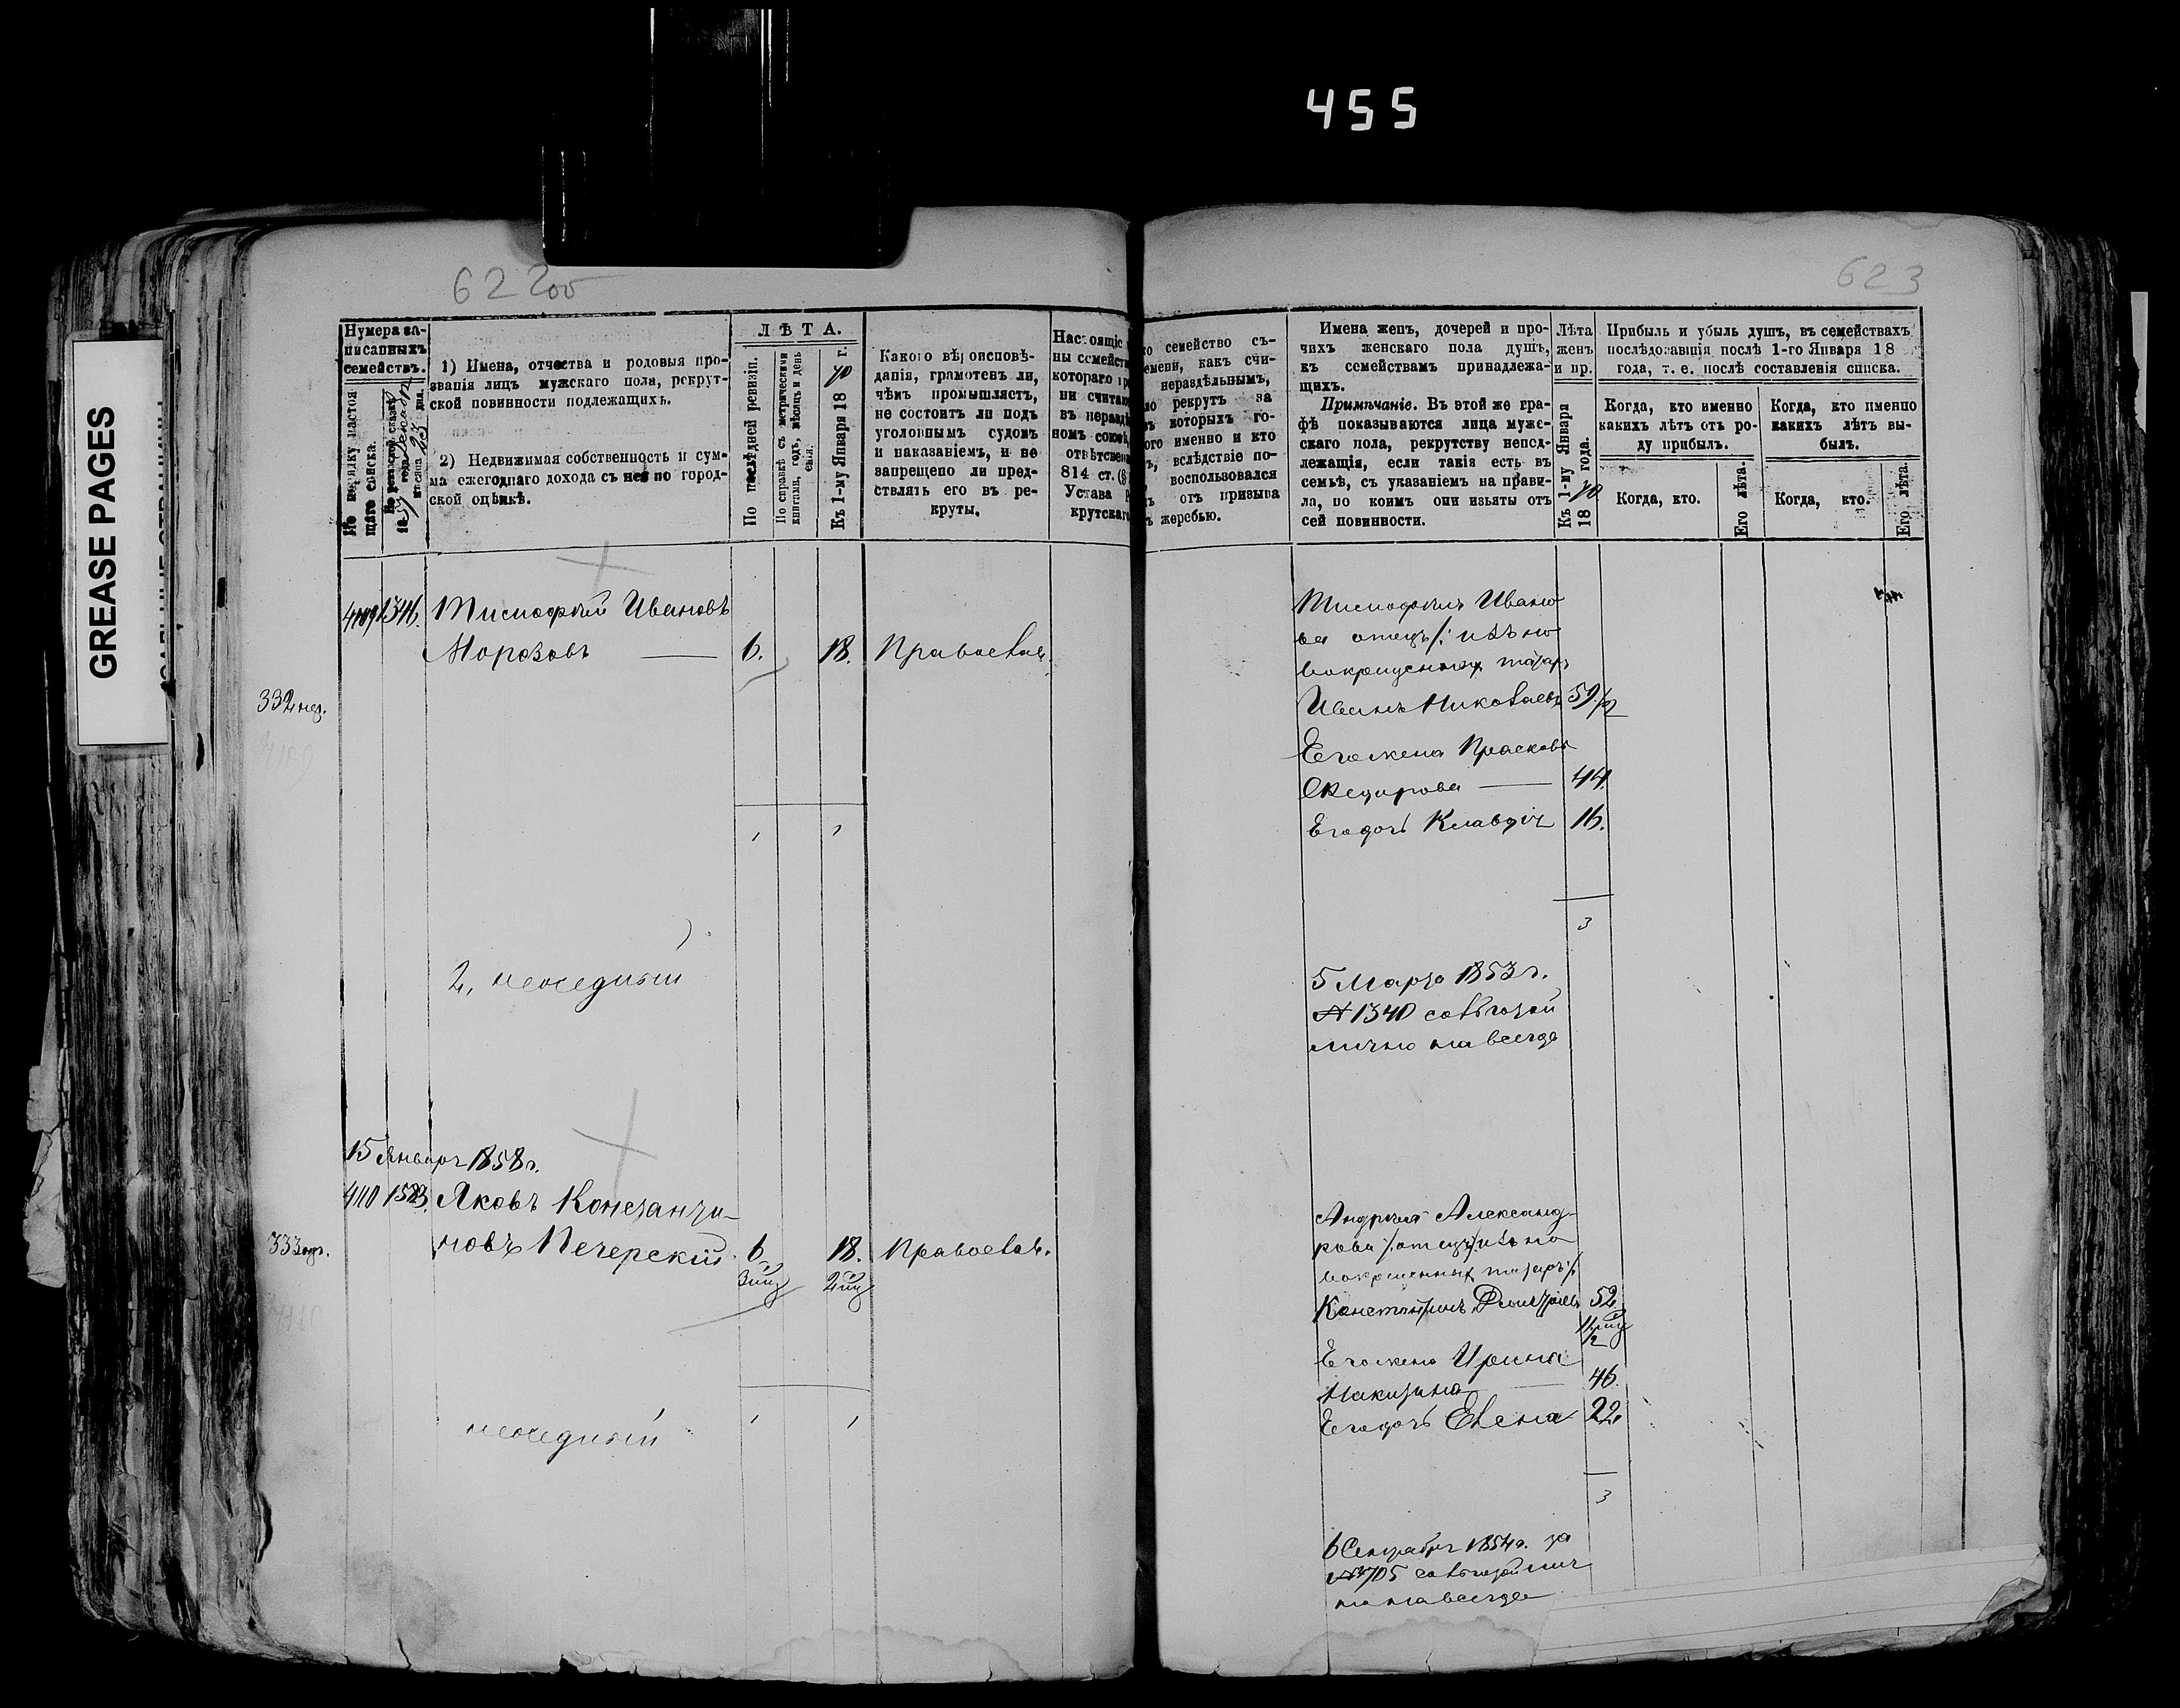 455
GREASE PAGES
622об
623
Нумера за-
писанныхъ
семействъ.
По порядку настоя
щаго списка.
1) Имена, отчества и родовыя про-
званія лицъ мужскаго пола, рекрут-
ской повинности подлежащихъ.
2) Недвижимая собственность и сум-
ма ежегоднаго дохода съ нея по город-
ской оцѣнкѣ.
ЛѢТА.
По послѣдней ревизіи.
По справкѣ съ метрическими
книгами, годъ, мѣсяцъ и день
Къ 1-му Января 1870 г.
Какого вѣроисповѣ-
данія, грамотенъ ли,
чѣмъ промышляетъ,
не состоитъ ли подъ
уголовнымъ судомъ
и наказаніемъ, и не
запрещено ли пред-
ставлять его въ ре-
круты.
Настоящіе
ны семейст
котораго
ни считаю
въ неразд
номъ союз
отвѣтствен
814 ст. (§
Устава Р
крутскаго
о семейство съ-
емени, какъ счи-
нераздѣльнымъ,
ло рекрутъ за
ъ которыхъ го-
ого именно и кто
ъ, вслѣдствіе по-
воспользовался
отъ призыва
ъ жеребью.
Имена женъ, дочерей и про-
чихъ женскаго пола душъ,
къ семействамъ принадлежа-
щихъ.
Примѣчаніе. Въ этой же гра-
фѣ показываются лица муже-
скаго пола, рекрутству непод-
лежащія, если такія есть въ
семьѣ, съ указаніемъ на прави-
ла, по коимъ они изъяты отъ
сей повинности.
Лѣта
женъ
и пр.
Къ 1-му Января
1870 года.
Прибыль и убыль душъ, въ семействахъ
послѣдовавшія послѣ 1-го Января 18
года, т. е. послѣ составленія списка.
Когда, кто именно
какихъ лѣтъ отъ ро-
ду прибылъ.
Когда, кто именно
какихъ лѣтъ вы-
былъ.
Когда, кто.
Его лѣта.
Когда, кто.
Его лѣта.
4109 1346. Тимофѣй Ивановъ
Морозовъ 6. 18. Православ.
332
Тимофѣя Ивано
ва отецъ /: изъ но
вокрещенныхъ татаръ
Иванъ Николаевъ 59
Его жена Прасковья
Федорова 44.
Его дочь Клавдія 16.
1 1
3
2, неоседлый
5 Марта 1853 г.
№ 1340 со льготой
лично навсегда
15 Января 1858 г.
4110 1583. Яковъ Константи-
новъ Печерскій. 6 18. Православ.
333
Андрея Александ-
рова /: отецъ изъ но
вокрещенныхъ татаръ :/
Константинъ 52
Его жена Ирина
Никитина 46.
Его дочь Елена 22.
1 1
3
неоседлый
6 Сентября 1854 г. за
№ 4705 со льготой лич
но навсегда